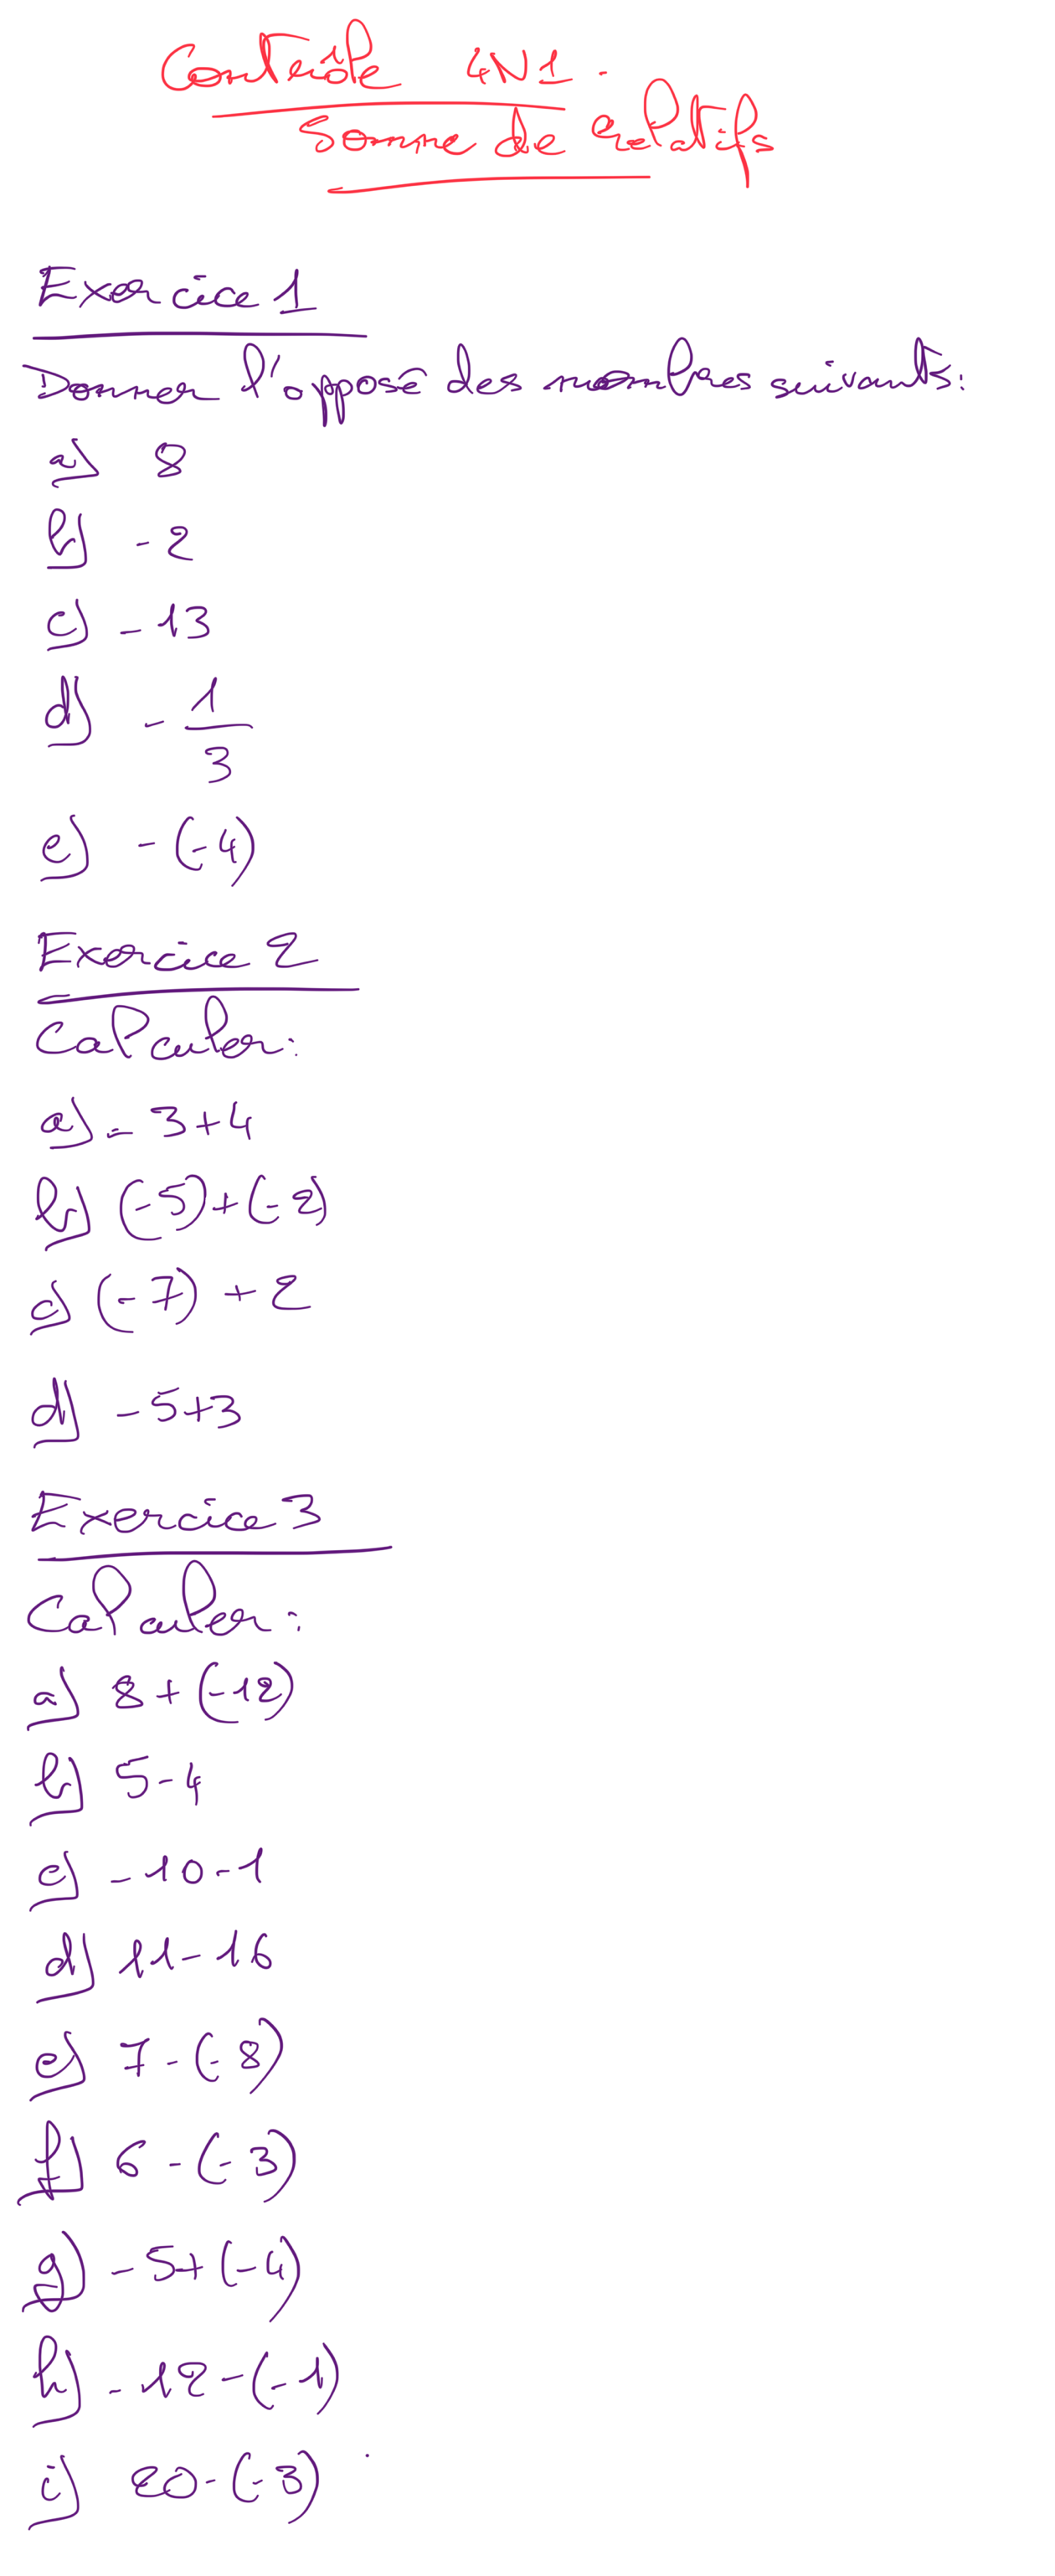 Contrôle 4N1.
Somme de relatifs
Exercice 1
Donner l'opposé des nombres suivants:
a) 8
b) - 2
c) - 13
d) - 1/3
e) - (-4)
Exercice 2
Calculer:
a) - 3+4
b) (-5)+(-2)
c) (-7) + 2
d) - 5+3
Exercice 3
Calculer:
a) 8+(-12)
b) 5-4
c) -10-1
d) 11-16
e) 7-(-8)
f) 6-(-3)
g) -5+(-4)
h) -12-(-1)
i) 20-(-3)